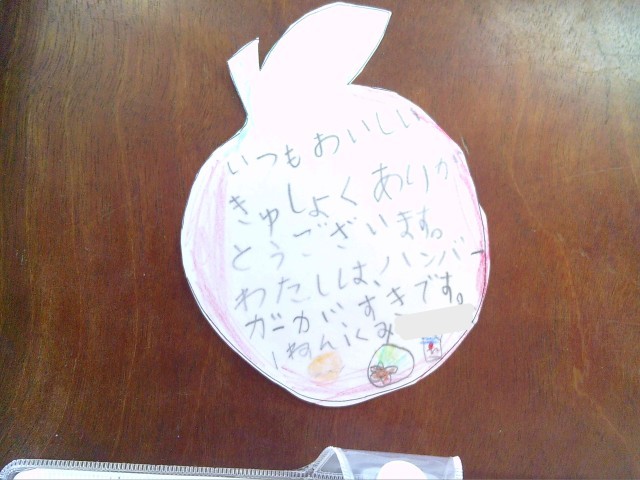 いつもおいしい
きゅしょくありが
とうございます。
わたしは、ハンバー
ガーが、すきです。
1ねん1くみ